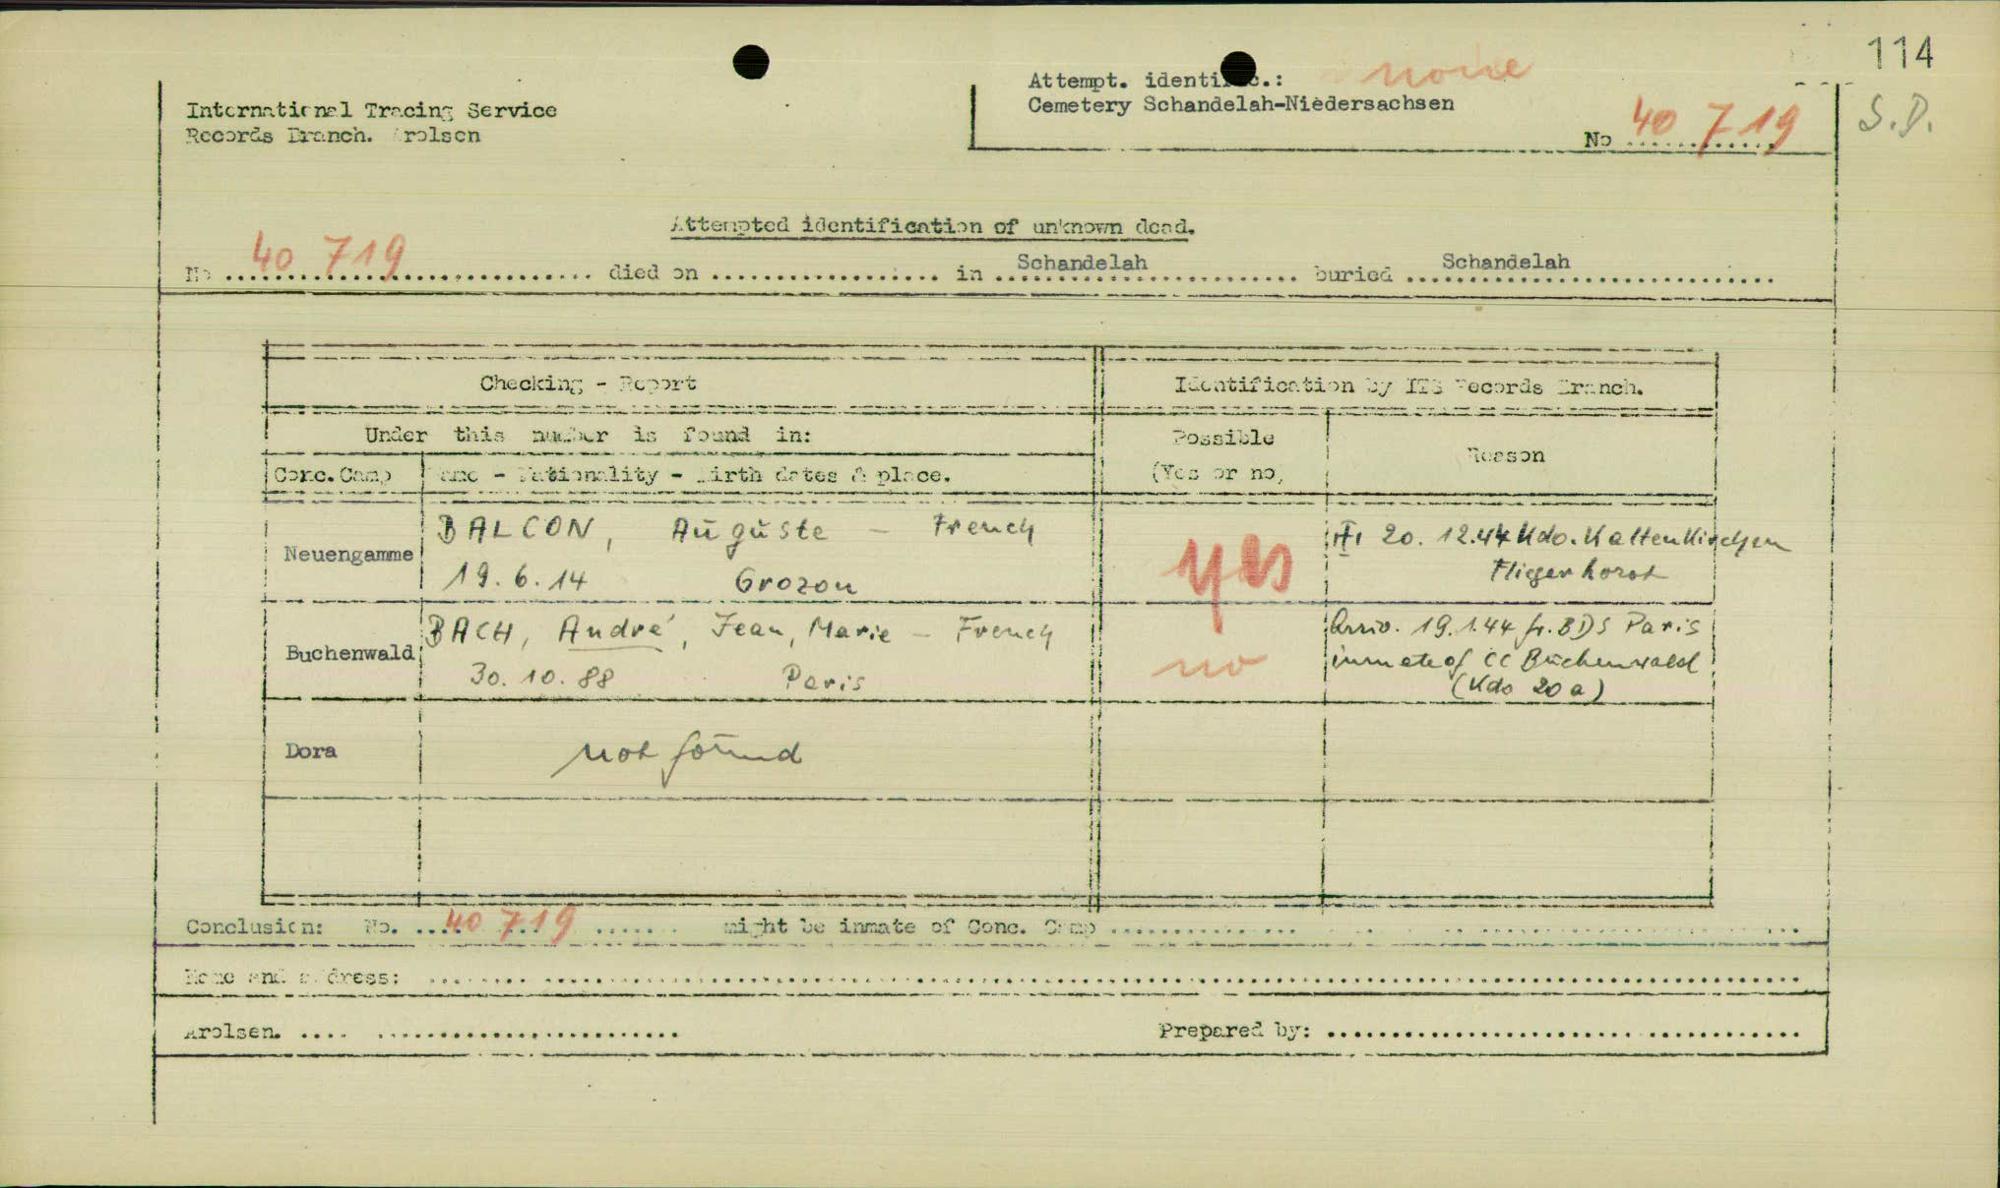 114
Attempt. identific.: none
Cemetery Schandelah-Niedersachsen
S.D.
No 40 719
International Tracing Service
Records Branch. Arolsen
Attempted identification of unknown dead.
No 40 719 died on .................. in Schandelah buried Schandelah
Checking - Report Identification by ITS Records Branch.
Under this number is found in: Possible Reason
Conc.Camp Name - Nationality - Birth dates & place. (Yes or no)
Neuengamme BALCON, Auguste - French yes 20.12.44 Kdo. Kaltenkirchen
19.6.14 Grozon Fliegerhorst
Buchenwald BACH, André, Jean, Marie - French no Arriv. 19.1.44 fr. BDS Paris
30.10.88 Paris inmate of CC Buchenwald
(Kdo 20a)
Dora not found
Conclusion: No. 40 719 might be inmate of Conc. Camp ..................
Name and address: ..................
Arolsen. .................. Prepared by: ..................